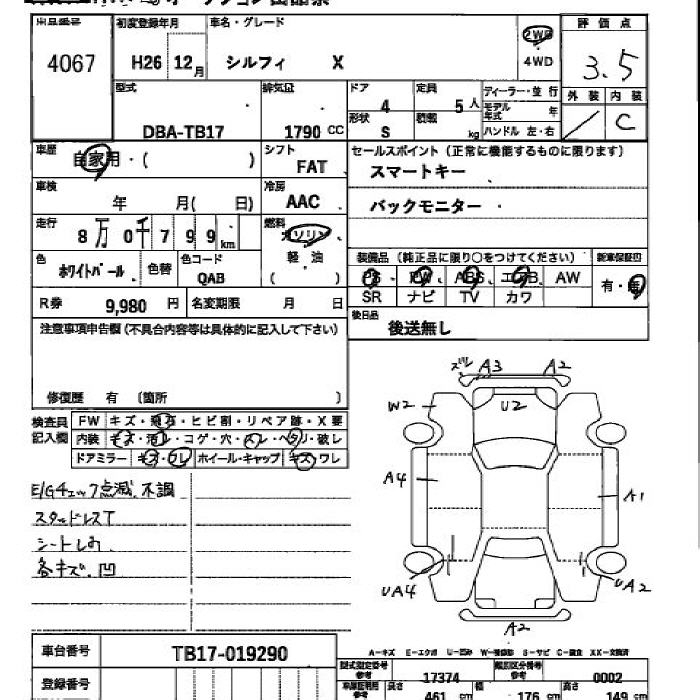 出品番号 初度登録年月 車名・グレード 2WD 評価点
4067 H26 12月 シルフィ X 4WD 3.5
型式 排気量 ドア 4 定員 5人 ディーラー・並行 外装 内装
DBA-TB17 1790 CC 形状 S 積載 kg モデル年式 年 ハンドル 左・右 C
車歴 自家用・( ) シフト FAT セールスポイント(正常に機能するものに限ります)
スマートキー
車検 年 月( 日) 冷房 AAC バックモニター
走行 8万0千799km 燃料 ガソリン 軽・油 ( )
色 ホワイトパール 色替 色コード QAB
装備品(純正品に限り○をつけてください) 新車保証書
PS PW ABS エアB AW 有・無
SR ナビ TV カワ
R券 9,980円 名変期限 月 日 後日品 後送無し
注意事項申告欄(不具合内容等は具体的に記入して下さい)
修復歴 有 〔箇所 〕
検査員記入欄 FW キズ・飛石・ヒビ割・リペア跡・X要
内装 キズ・汚レ・コゲ・穴・スレ・ヘタリ・破レ
ドアミラー キズ・ワレ ホイール・キャップ キズ・ワレ
E/Gチェック点滅.不調
スタッドレスT
シート
各キズ.凹
A3 A2
W2 U2
A4 A1
UA4 UA2
A2
A-キズ E-エクボ U-凹み W-補修跡 S-サビ C-腐食 XX-交換済
車台番号 TB17-019290
登録番号
型式指定番号 参考 17374 類別区分番号 参考 0002
長さ 461 cm 幅 176 cm 高さ 149 cm